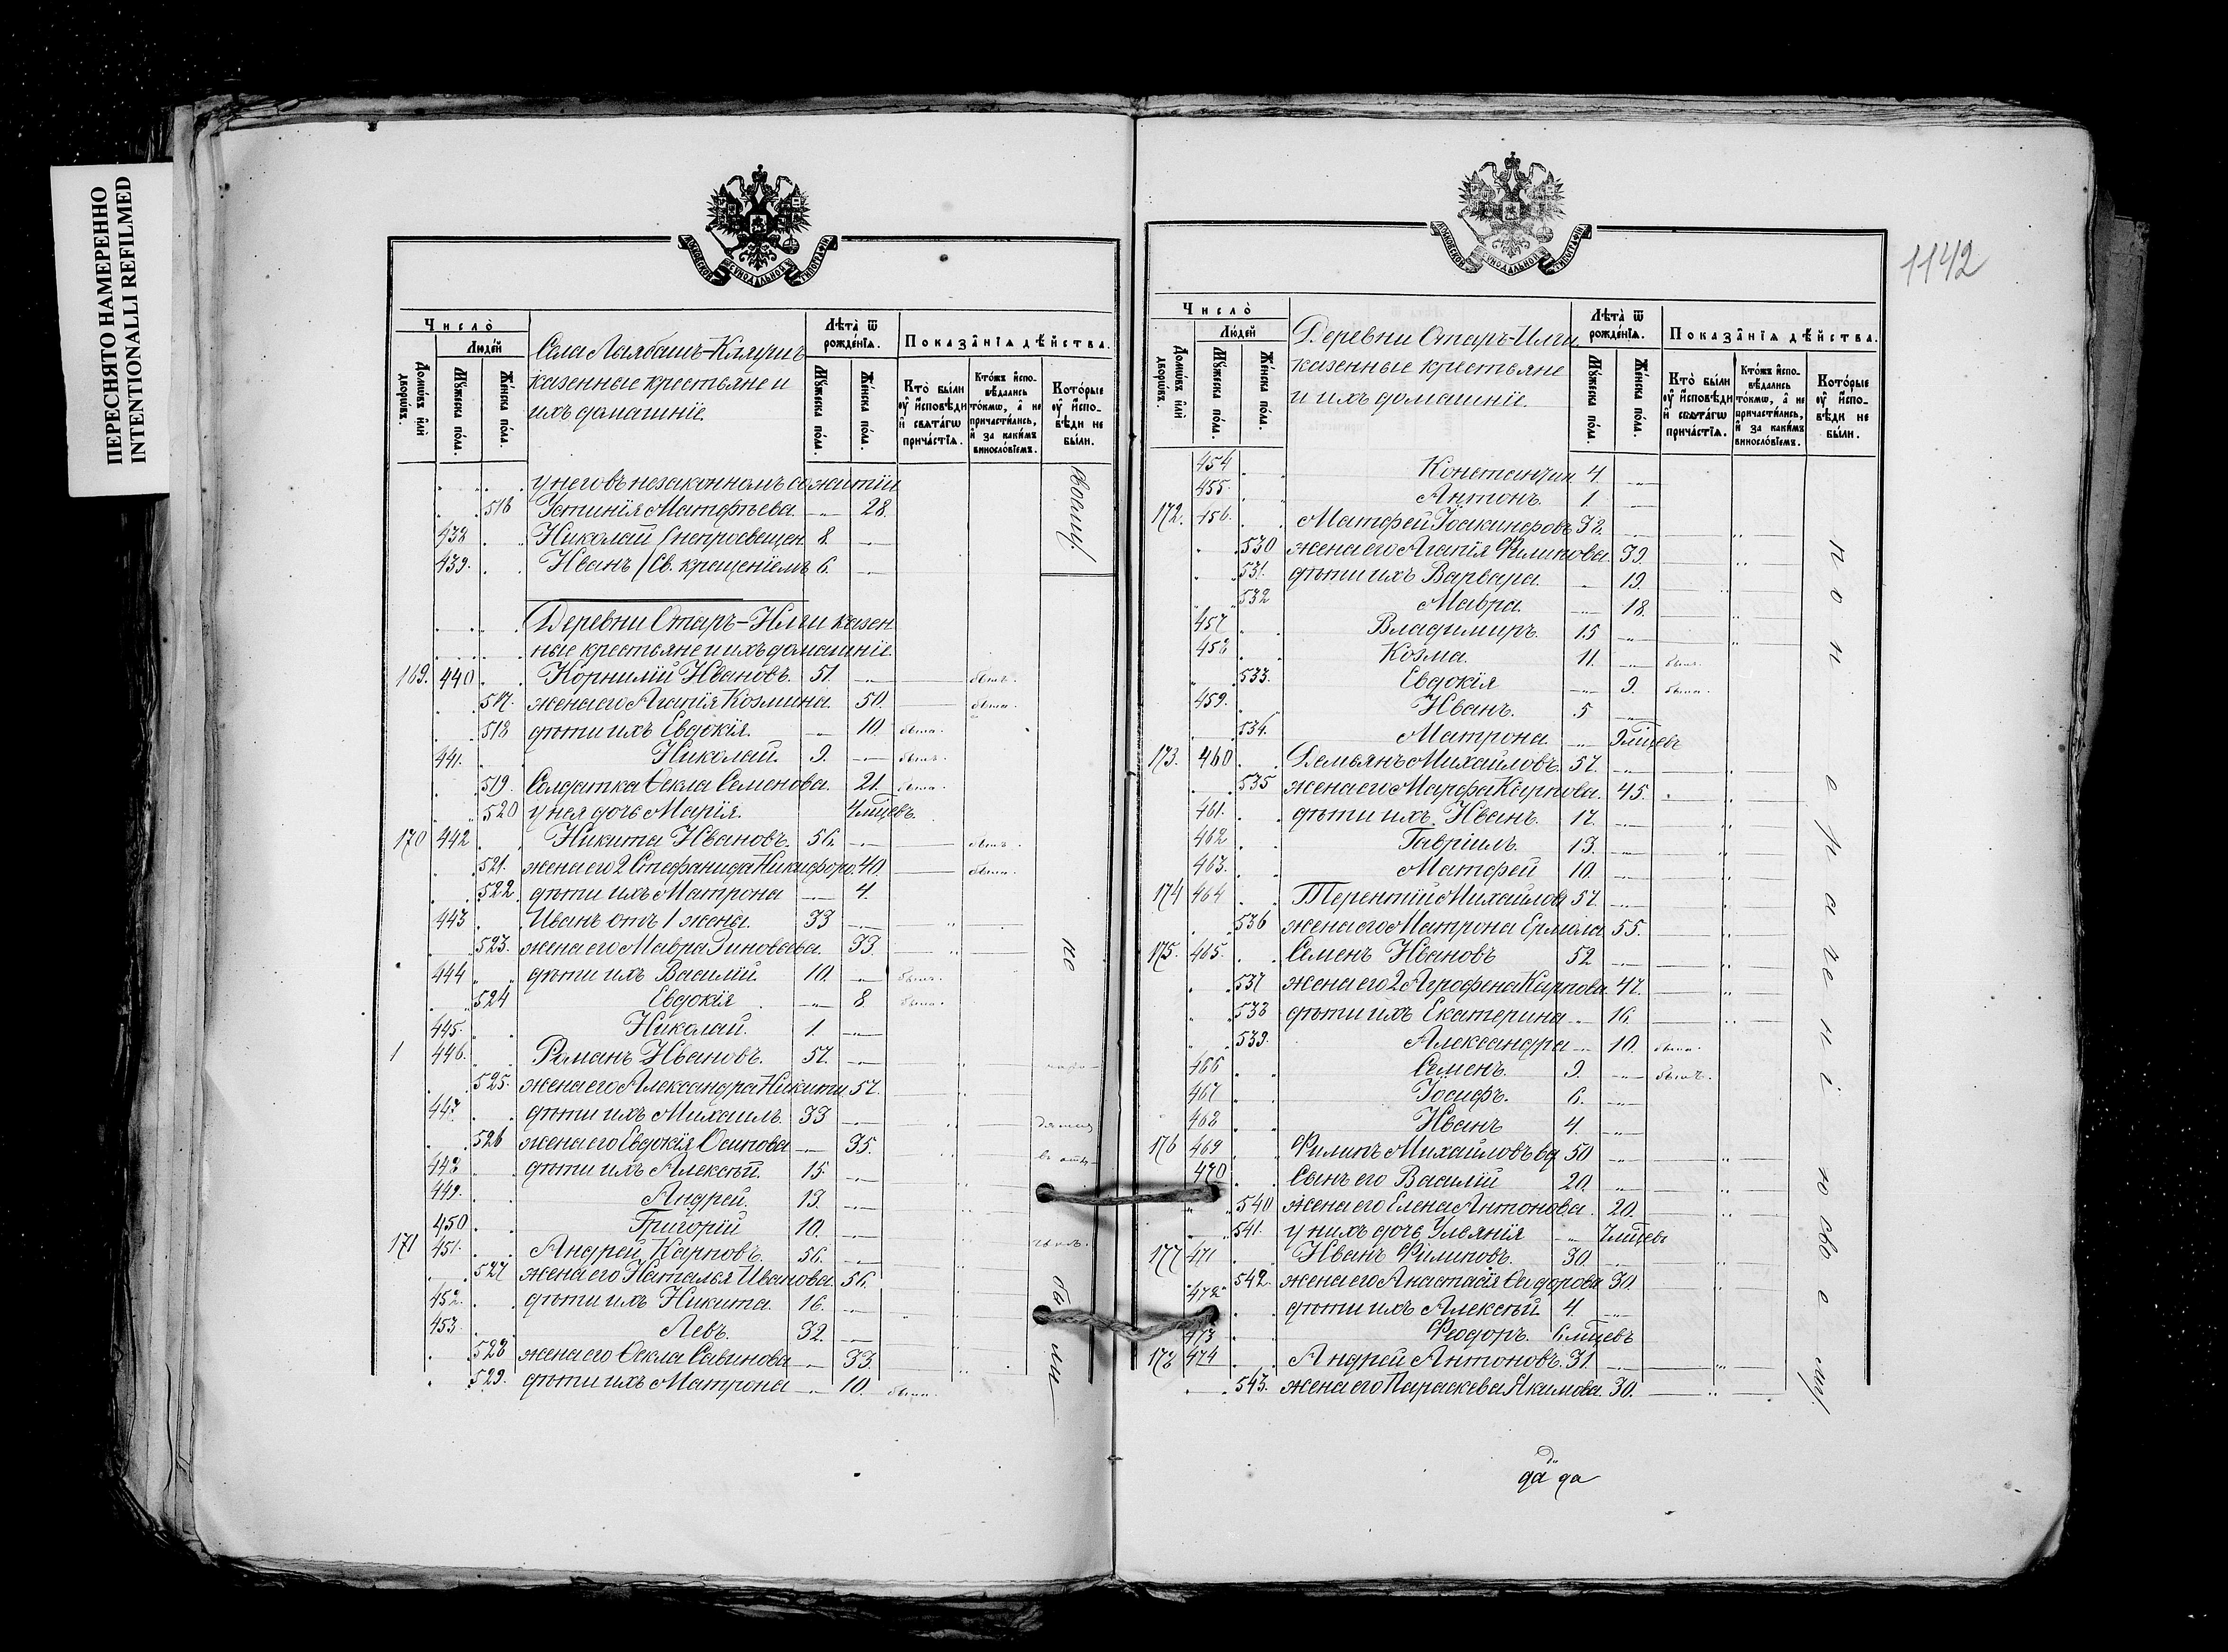 ПЕРЕСНЯТО НАМЕРЕННО
INTENTIONALLI REFILMED
МОСКОВСКОЙ СѴНОДАЛЬНОЙ ТИПОГРАФІИ
Число̀
Люде́й
Лѣта̀ ѿ рожде́нїѧ.
Показа̑нїѧ дѣ́йства.
Домѡ́въ и҆лѝ дворѡ́въ.
Мꙋ́жеска по́ла.
Же́нска по́ла.
Мꙋ́жеска по́ла.
Же́нска по́ла.
Кто̀ бы́ли оу҆ и҆́сповѣди и҆ свѧта́гѡ прича́стїѧ.
Кто́жъ и҆спо-вѣ́дались то́кмѡ, а҆ не причасти́лись, и҆ за каки́мъ винословїемъ.
Кото́рые оу҆ и҆́спо-вѣди не бы́ли.
казенные крестьяне и
ихъ домашніе.
у него въ незаконномъ сожитіи
516 Устинія Матфѣева 28.
438 Николай (непросвещен. 8.
439. Иванъ (Св. крещеніемъ 6.
Деревни Старъ-Илги казен
ные крестьяне и ихъ домашніе.
169. 440 Корнилій Ивановъ. 51. былъ.
517. жена его Агапія Козмина 50. была.
518 дѣти ихъ Евдокія. 10. была.
441. Николай. 9. былъ.
519. Солдатка Ѳекла Семенова. 21. была.
520 у нея дочь Марія. 4 мѣцевъ.
170 442 Никита Ивановъ. 56. былъ.
521. жена его 2 Стефанида Никифоро. 40. была.
522. дѣти ихъ Матрона 4.
443 Иванъ отъ 1 жены. 33
523. жена его Мавра Зиновьева. 33.
444 дѣти ихъ Василій. 10. былъ.
524 Евдокія 8. была.
445. Николай. 1.
1 446. Романъ Ивановъ. 57.
525. жена его Александра Никити. 57.
447 дѣти ихъ Михаилъ. 33
526 жена его Евдокія Осипова 35.
448 дѣти ихъ Алексѣй. 15.
449. Андрей. 13.
450 Григорій 10.
171 451. Андрей Карповъ. 56.
527 жена его Наталья Иванова. 56.
452. дѣти ихъ Никита. 16.
453 Левъ. 32.
528 жена его Ѳекла Савинова 33.
529. дѣти ихъ Матрона 10. была.
не бы ли
1142
МОСКОВСКОЙ СѴНОДАЛЬНОЙ ТИПОГРАФІИ
Число̀
Люде́й
Лѣта̀ ѿ рожде́нїѧ.
Показа̑нїѧ дѣ́йства.
Домѡ́въ и҆лѝ дворѡ́въ.
Мꙋ́жеска по́ла.
Же́нска по́ла.
Мꙋ́жеска по́ла.
Же́нска по́ла.
Кто̀ бы́ли оу҆ и҆́сповѣди и҆ свѧта́гѡ прича́стїѧ.
Кто́жъ и҆спо-вѣ́дались то́кмѡ, а҆ не причасти́лись, и҆ за каки́мъ винословїемъ.
Кото́рые оу҆ и҆́спо-вѣди не бы́ли.
Деревни Старъ-Илги
казенные крестьяне
и ихъ домашніе.
454 Константин 4.
455. Антонъ. 1.
172. 456. Матфей Іоакинфовъ 32.
530 жена его Агапія Филипова. 39.
531. дѣти ихъ Варвара. 19.
532 Мавра. 18.
457 Владимиръ. 15
458 Козма. 11. былъ.
533. Евдокія 9. была.
459. Иванъ. 5
534. Матрона. 9 мѣцевъ
173. 460 Демьянъ Михайловъ. 57.
535 жена его Марфа Карпова. 45.
461. дѣти ихъ. Иванъ. 17.
462 Гавріилъ. 13.
463. Матфей 10.
174 464 Терентій Михайлов 57.
536 жена его Матрона Ермила 55.
175. 465. Семенъ Ивановъ 52
537 жена его 2 Агрофена Карпова. 47.
538 дѣти ихъ Екатерина 16.
539. Александра 10. была.
466 Семенъ. 9. былъ.
467 Іосифъ. 6.
468 Иванъ 4.
176 469 Филипъ Михайловъ вд 50
470 Сынъ его Василій 20.
540 жена его Елена Антонова. 20.
541. у нихъ дочь Ульянія 7 мѣцевъ
177 471 Иванъ Филиповъ. 30.
542. жена его Анастасія Ѳедорова 30.
472 дѣти ихъ Алексѣй 4.
473 Феодоръ. 6 мѣцевъ
178 474 Андрей Антоновъ. 31.
543. жена его Параскева Якимова. 30.
да да